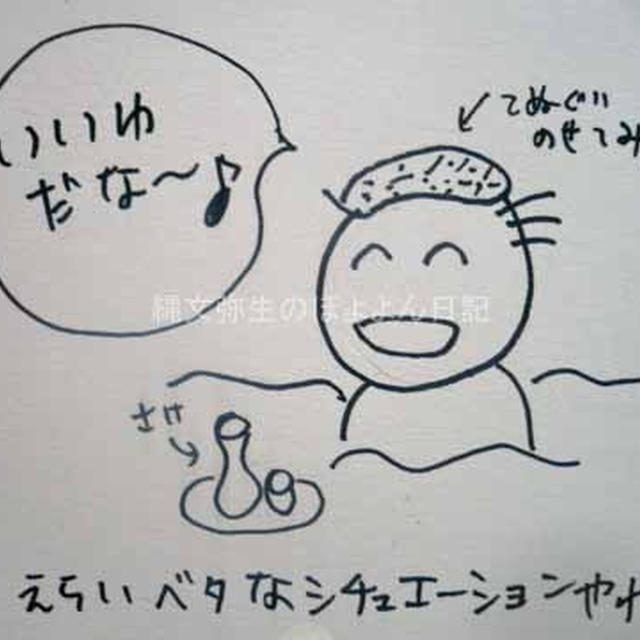 いいゆ
だな〜♪
てぬぐい
のせてみ
縄文弥生のほよよん日記
さけ
えらいベタなシチュエーションやわ